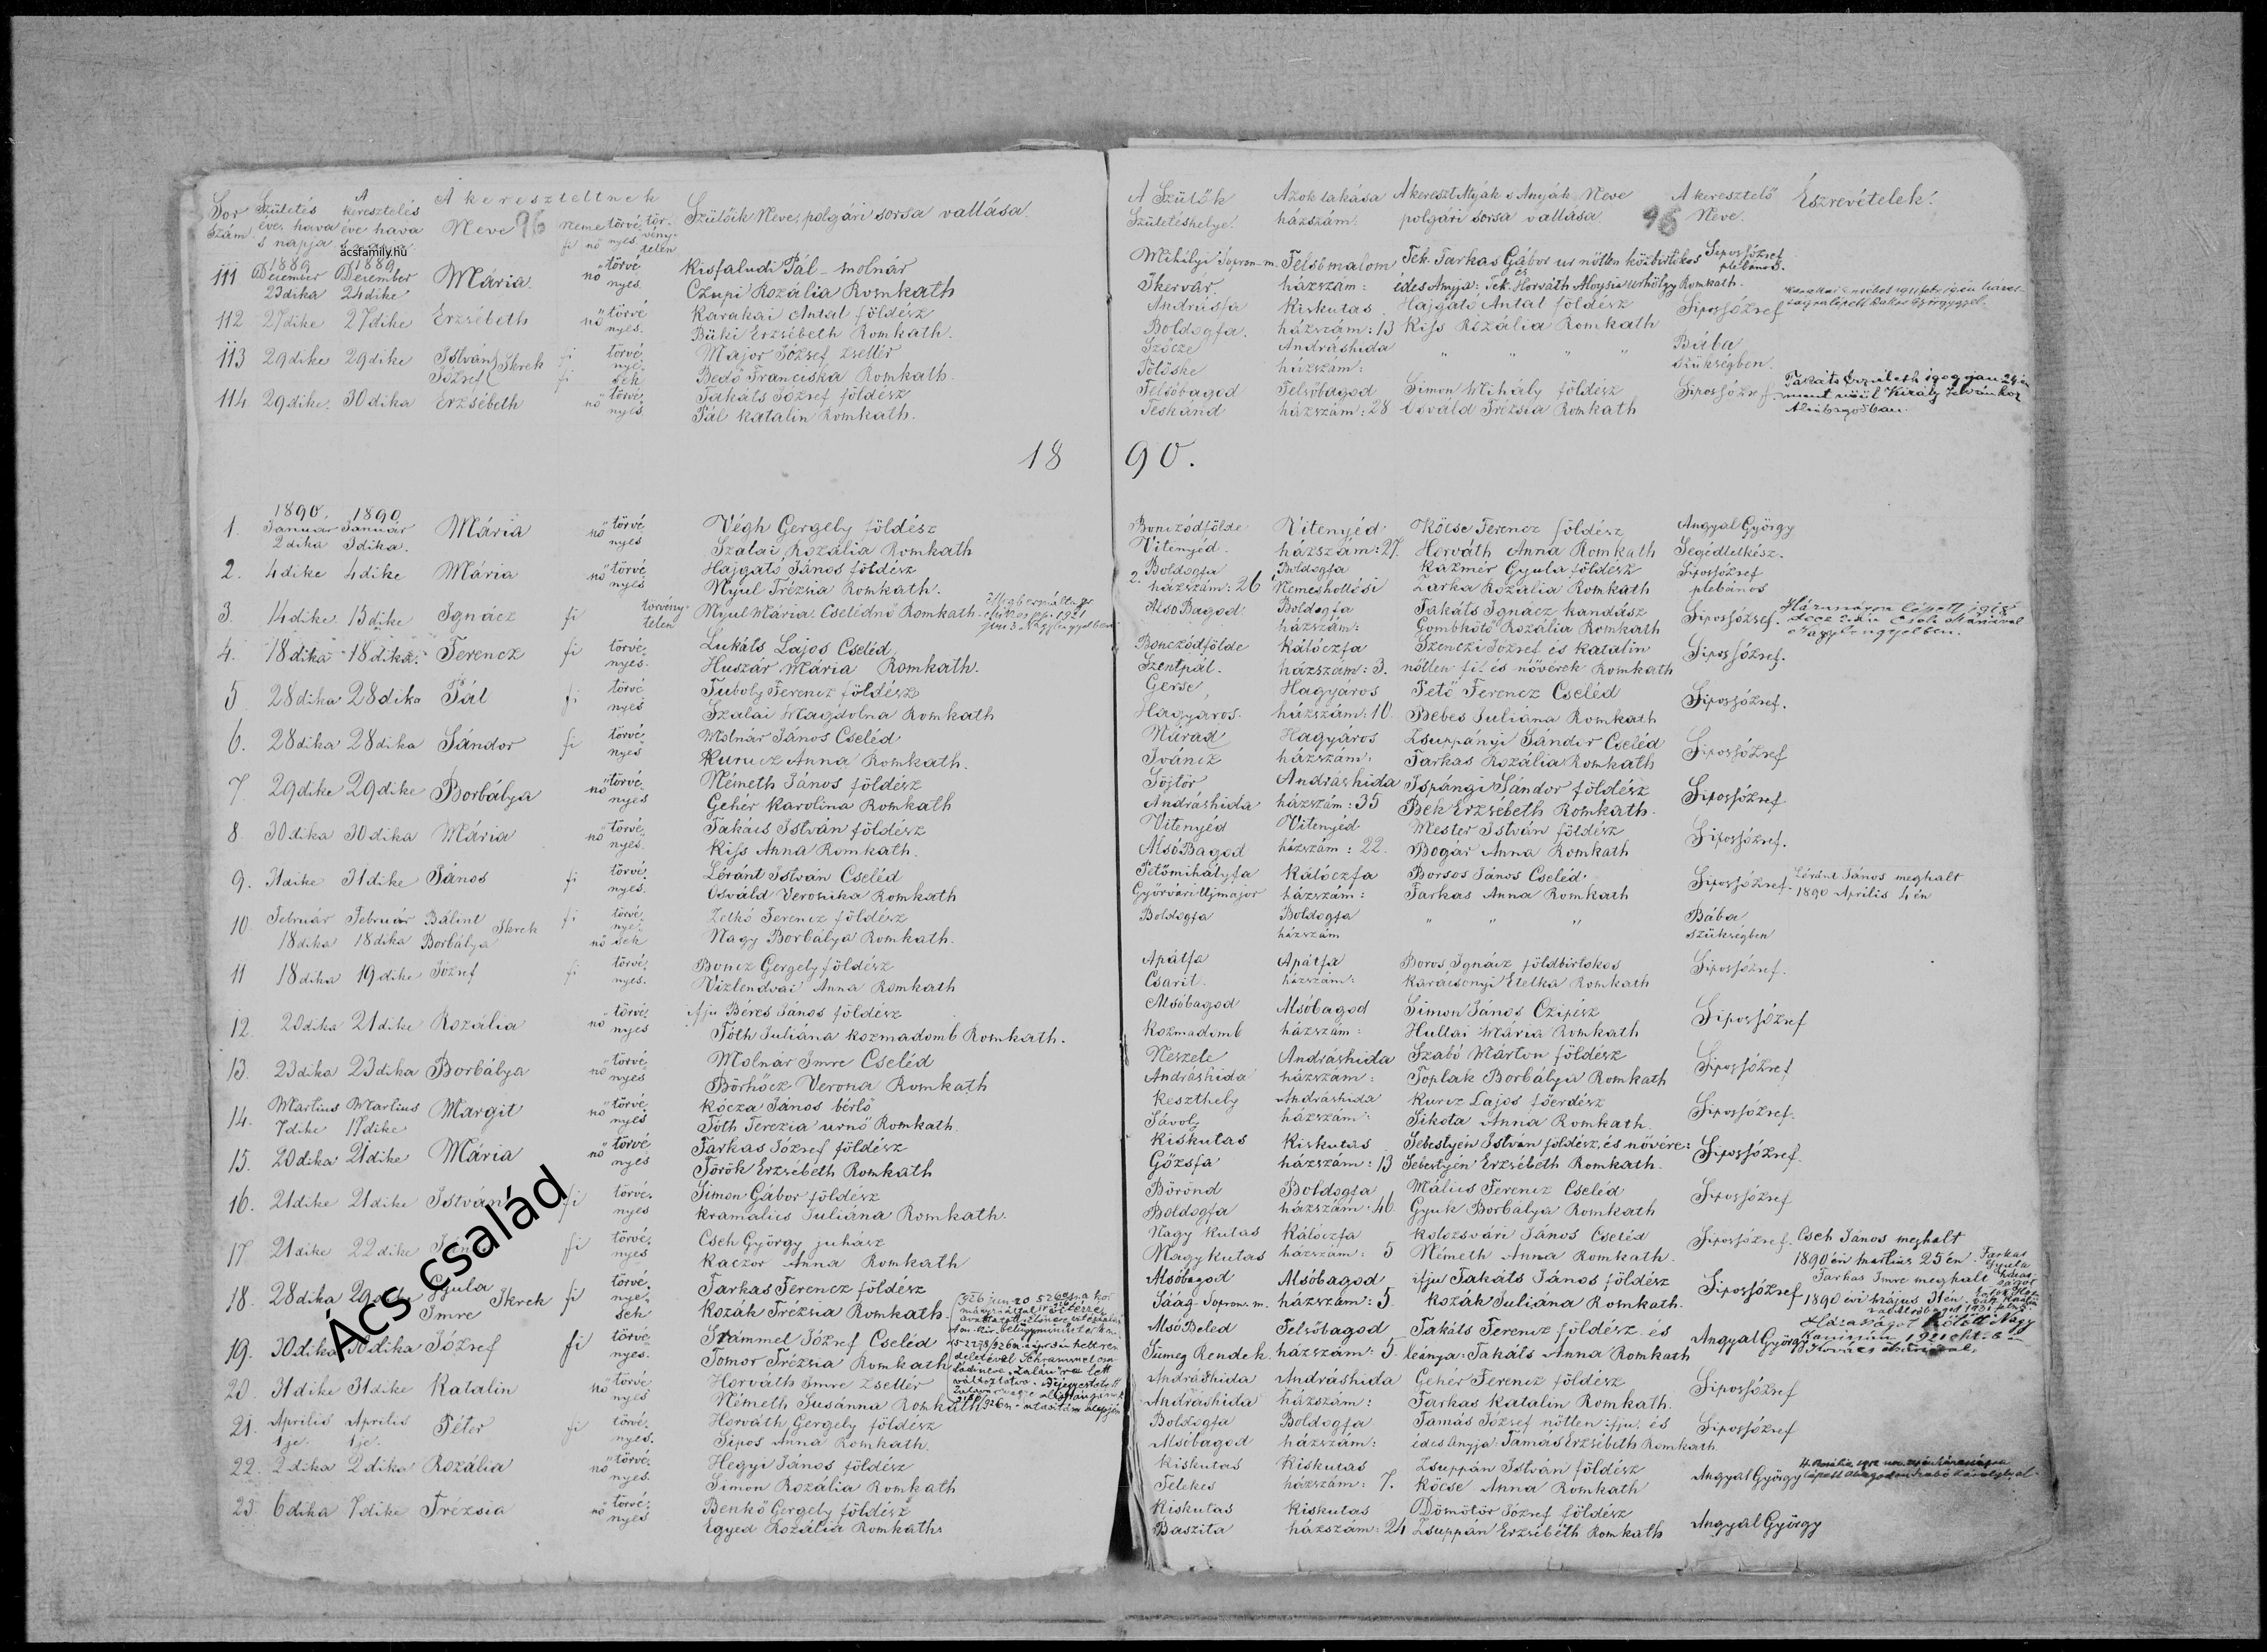 Sor Szám
Születés éve, hava s napja
A keresztelés éve hava s napja
A kereszteltnek
Neve 96
neme fi nő
törvényes
törvénytelen
Szülőik Neve, polgári sorsa vallása.
A Szülők Születéshelye.
Azok lakása házszám.
A kereszt Atyák s Anyák Neve polgári sorsa vallása. 96
A keresztelő Neve.
Észrevételek.
ácsfamily.hu
111 1889 December 23dika 1889 December 24dike Mária nő törvényes Kisfaludi Pál molnár
Czupi Rozália Romkath
Mihályi Sopron m. Felsőmalom Tek. Farkas Gábor ur nőtlen közbirtokos Sipos József plébános.
Ikervár házszám: és édes Anyja: Tek. Horváth Aloysia urhölgy Romkath.
112 27dike 27dike Erzsébeth nő törvényes Karakai Antal földész
Büki Erzsébeth Romkath.
Andrásfa Kiskutas Hajgató Antal földész Sipos József
Boldogfa. házszám: 13 Kiss Rozália Romkath
113 29dike 29dike István József Ikrek fi fi törvényesek Major József zsellér
Bedő Franciska Romkath.
Szőcze Andráshida " " " " Bába
Pölöske házszám: szükségben.
114 29dike. 30dika Erzsébeth nő törvényes Takáts József földész
Pál Katalin Romkath.
Felsőbagod Felsőbagod Simon Mihály földész Sipos József.
Teskánd házszám: 28 Osváld Trézsia Romkath
Takáts Erzsébeth 1909 jan 24én ment nőül Király Istvánhoz Alsóbagodban.
1890.
1. 1890. Január 2dika 1890 Január 3dika. Mária nő törvényes Végh Gergely földész
Szalai Rozália Romkath
Bonczódfölde Vitenyéd Köcse Ferencz földész Angyal György
Vitenyéd. házszám: 27. Horváth Anna Romkath Segédlelkész.
2. 4dike 4dike Mária nő törvényes Hajgató János földész
Nyul Trézsia Romkath.
2. Boldogfa Boldogfa Kázmér Gyula földész Sipos József
házszám: 26 Nemeshollósi Zarka Rozália Romkath plébános
3. 14dike. 15dike Ignácz fi törvénytelen Nyul Mária Cselédnő Romkath.
Alsó Bagod Boldogfa Takáts Ignácz kandász Sipos József.
házszám: Gombkötő Rozália Romkath
4. 18dika 18dika. Ferencz fi törvényes. Lukáts Lajos Cseléd
Huszár Mária Romkath.
Bonczódfölde Kálóczfa Szenczi József és Katalin Sipos József.
Szentpál. házszám: 3. nőtlen fi és nővérek Romkath
5 28dika 28dika Pál fi törvényes Tuboly Ferencz földész
Szalai Magdolna Romkath
Gerse, Hagyáros Pető Ferencz Cseléd Sipos József.
Hagyáros. házszám: 10. Bebes Juliána Romkath
6. 28dika 28dika Sándor fi törvényes Molnár János Cseléd
Kurucz Anna Romkath.
Nárad Hagyáros Zsuppányi Sándor Cseléd Sipos József
Iváncz házszám: Farkas Rozália Romkath
7 29dike 29dike Borbálya nő törvényes Németh János földész
Gehér Karolina Romkath
Söjtör Andráshida Ispángi Sándor földész Sipos József
Andráshida házszám: 35 Bek Erzsébeth Romkath.
8. 30dika 30dika Mária nő törvényes. Takács István földész
Kiss Anna Romkath.
Vitenyéd Vitenyéd Mester István földész Sipos József.
Alsó Bagod házszám: 22. Bogár Anna Romkath
9. 31dike 31dike János fi törvényes. Lóránt István Cseléd
Osváld Veronika Romkath
Petőmihályfa Kálóczfa Borsos János Cseléd. Sipos József.
Győrvári Ujmajor házszám: Farkas Anna Romkath
Lóránt János meghalt
1890 Aprilis 4én
10 Február 18dika Február 18dika Bálint Borbálya Ikrek fi nő törvényesek Zelkó Ferencz földész
Nagy Borbálya Romkath.
Boldogfa Boldogfa " " " Bába
házszám szükségben
11 18dika 19dike József fi törvényes. Boncz Gergely földész
Vizlendvai Anna Romkath
Apátfa Apátfa Boros Ignácz földbirtokos Sipos József.
Csarit. házszám: Karácsonyi Etelka Romkath
12. 20dika 21dike Rozália nő törvényes ifju Béres János földész
Tóth Juliána Kozmadomb Romkath.
Alsóbagod Alsóbagod Simon János Czipész Sipos József
Kozmadomb házszám: Hullai Mária Romkath
13. 23dika 23dika Borbálya nő törvényes Molnár Imre Cseléd
Börhőcz Verona Romkath
Neszele Andráshida Szabó Márton földész Sipos József
Andráshida házszám: Toplak Borbálya Romkath
14. Martius 7dike Martius 17dike Margit nő törvényes Kócza János bérlő
Tóth Terezia urnő Romkath.
Keszthely Andráshida Kurcz Lajos főerdész Sipos József.
Sávoly házszám: Sikota Anna Romkath.
15. 20dika 21dike Mária nő törvényes Farkas József földész
Török Erzsébeth Romkath
Kiskutas Kiskutas Sebestyén István földész, és nővére: Sipos József.
Gőzsfa házszám: 13 Sebestyén Erzsébeth Romkath.
16. 21dike 21dike István fi törvényes Simon Gábor földész
Kramalics Juliána Romkath.
Börönd Boldogfa Málics Ferencz Cseléd Sipos József
Boldogfa házszám: 46. Gyuk Borbálya Romkath
17. 21dike 22dike fi törvényes Cseh György juhász
Kaczor Anna Romkath
Nagy kutas Kálóczfa Kolozsvári János Cseléd Sipos József.
Nagy kutas házszám: 5 Németh Anna Romkath.
Cseh János meghalt
1890 évi martius 25én.
18. 28dika 29dike Gyula Imre Ikrek fi törvényesek Farkas Ferencz földész
Kozák Trézsia Romkath.
Alsóbagod Alsóbagod ifju Takáts János földész Sipos József
Sáág Sopron. m. házszám: 5. Kozák Juliána Romkath.
Farkas Imre meghalt
1890 évi május 31én.
19. 30dika 30dika József fi törvényes. Srammel József Cseléd
Tomor Trézsia Romkath
Alsó Beled Felsőbagod Takáts Ferencz földész és Angyal György
Sümeg Rendek. házszám: 5. leánya: Takáts Anna Romkath
20. 31dike 31dike Katalin nő törvényes Horváth Imre zsellér
Németh Susánna Romkath
Andráshida Andráshida Gehér Ferencz földész Sipos József
Andráshida házszám: Farkas Katalin Romkath.
21. Aprilis 1je. Aprilis 1je. Péter fi törvényes. Horváth Gergely földész
Sipos Anna Romkath.
Boldogfa Boldogfa Tamás József nőtlen ifju, és Sipos József
Alsóbagod házszám: édes Anyja: Tamás Erzsébeth Romkath.
22. 2dika 2dika Rozália nő törvényes. Hegyi János földész
Simon Rozália Romkath
Kiskutas Kiskutas Zsuppán István földész Angyal György
Telekes házszám: 7. Köcse Anna Romkath
23. 6dika 7dike Trézsia nő törvényes Benkő Gergely földész
Egyed Rozália Romkath
Kiskutas Kiskutas Dömötör József földész Angyal György
Baszita házszám: 24 Zsuppán Erzsébeth Romkath
Ács család